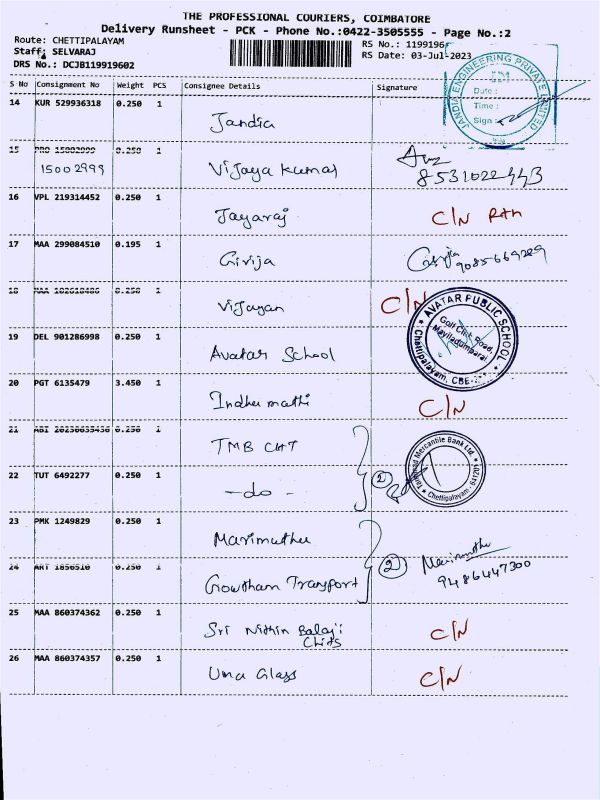 THE PROFESSIONAL COURIERS, COIMBATORE
Delivery Runsheet - PCK - Phone No.:0422-3505555 - Page No.:2
Route: CHETTIPALAYAM RS No.: 1199196
Staff: SELVARAJ RS Date: 03-Jul-2023
DRS No.: DCJB119919602
JANDIA ENGINEERING PRIVATE LIMITED
Date :
Time :
Sign :
S No Consignment No Weight PCS Consignee Details Signature
14 KUR 529936318 0.250 1 Jandia
15 PRO 15002999 0.250 1
15002999 Vijaya Kumar 8531022443
16 VPL 219314452 0.250 1 Jayaraj C/N
17 MAA 299084510 0.195 1 Girija Girija 9085669289
18 0.250 1 Vijayan C/N
19 DEL 901286998 0.250 1 Avatar School
AVATAR PUBLIC SCHOOL
Golf Club Road,
Mayiladumparai
Chettipalayam, CBE-
20 PGT 6135479 3.450 1 Indhumathi C/N
21 0.250 1 TMB CHT
22 TUT 6492277 0.250 1 - do - 2
Tamilnad Mercantile Bank Ltd.
Chettipalayam - 641201
23 PMK 1249829 0.250 1 Marimuthu
24 ART 1856510 0.250 1 Gowtham Transport 2 Marimuthu
9486447300
25 MAA 860374362 0.250 1 Sri Nithin Balaji
Chits C/N
26 MAA 860374357 0.250 1 Uma Glass C/N